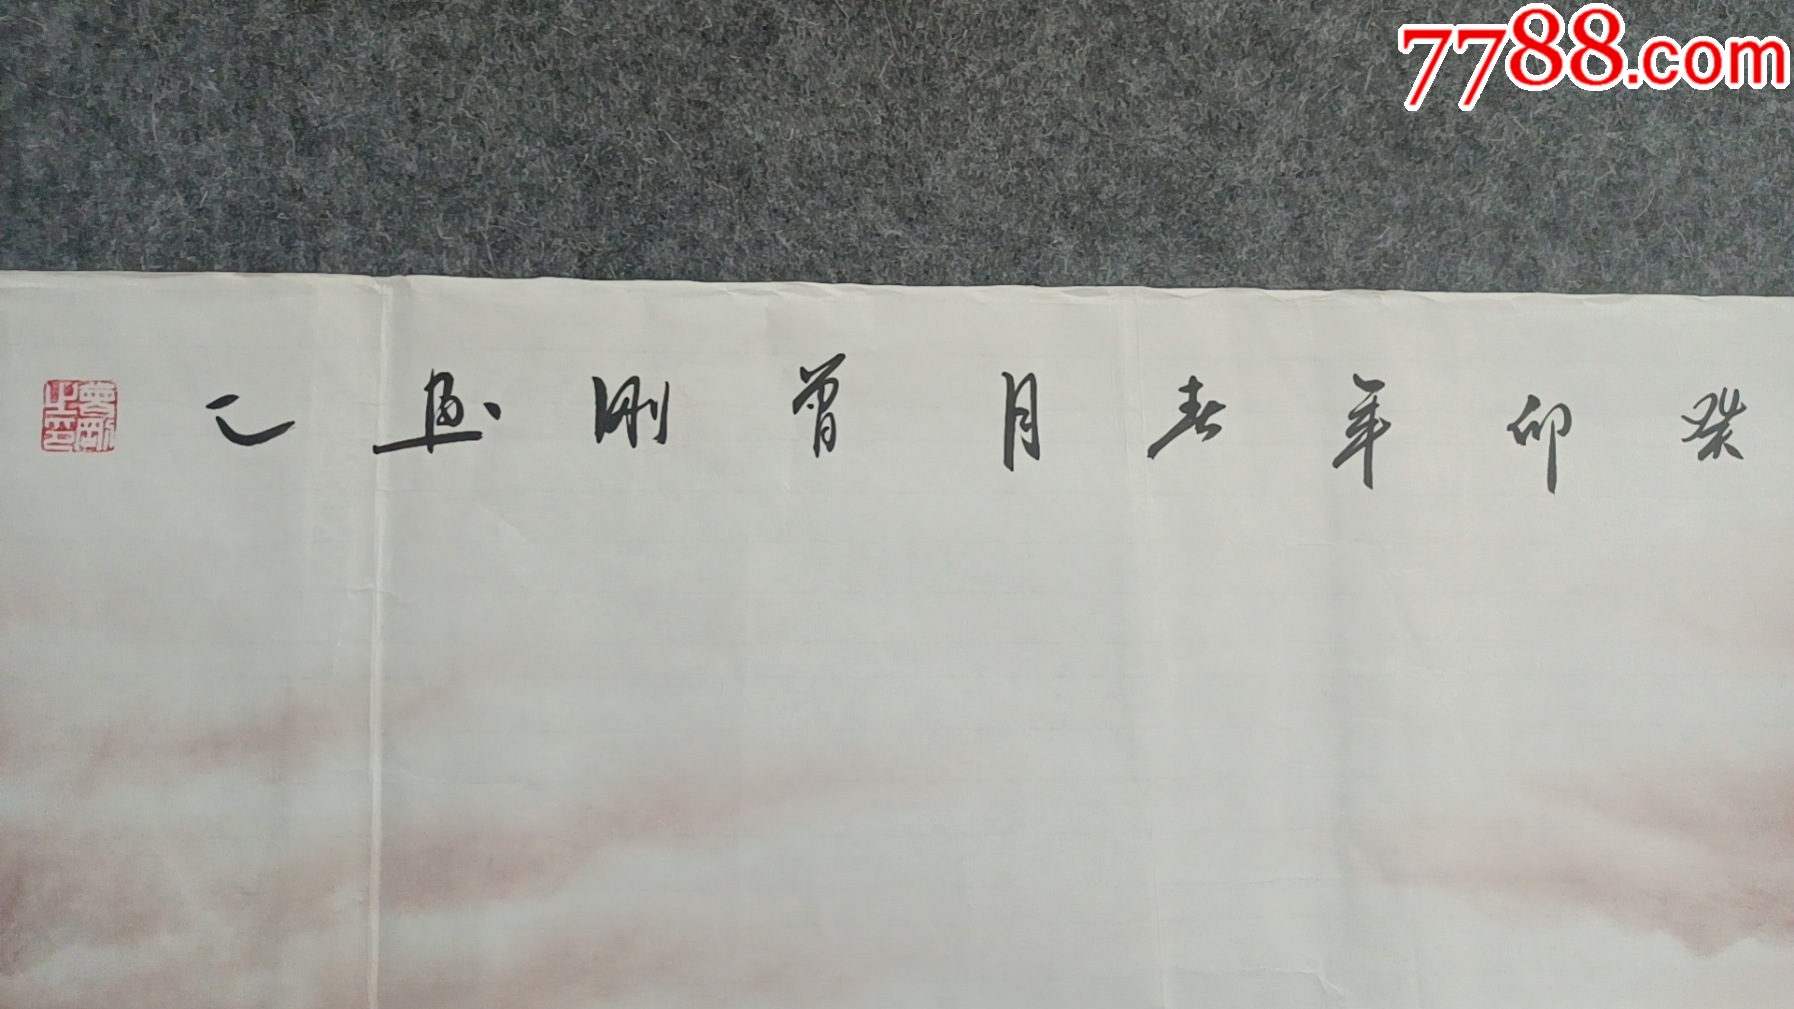 7788.com
癸卯年春月曾刚画之
曾刚之印